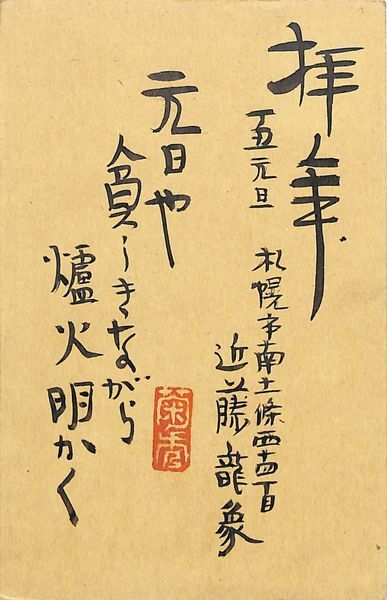 拝年
丁丑元旦
札幌市南十一條西十四丁目
近藤龍象
元日や
貧しきながら
爐火明かく